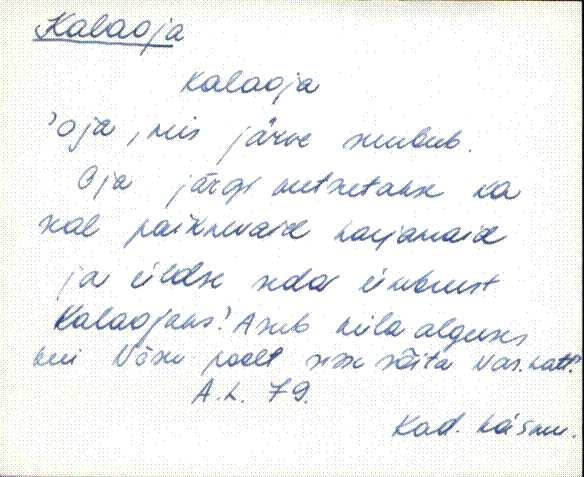 Kalaoja
Kalaoja
'oja, mis järve suubub.
Oja järgi nimetatakse ka
seal paiknevaid karjamaid
ja üldse seda ümbrust
Kalaojaks! Asub küla alguses
kui Võsu poolt sisse sõita
A.L. 79.
Kad. Käsmu.